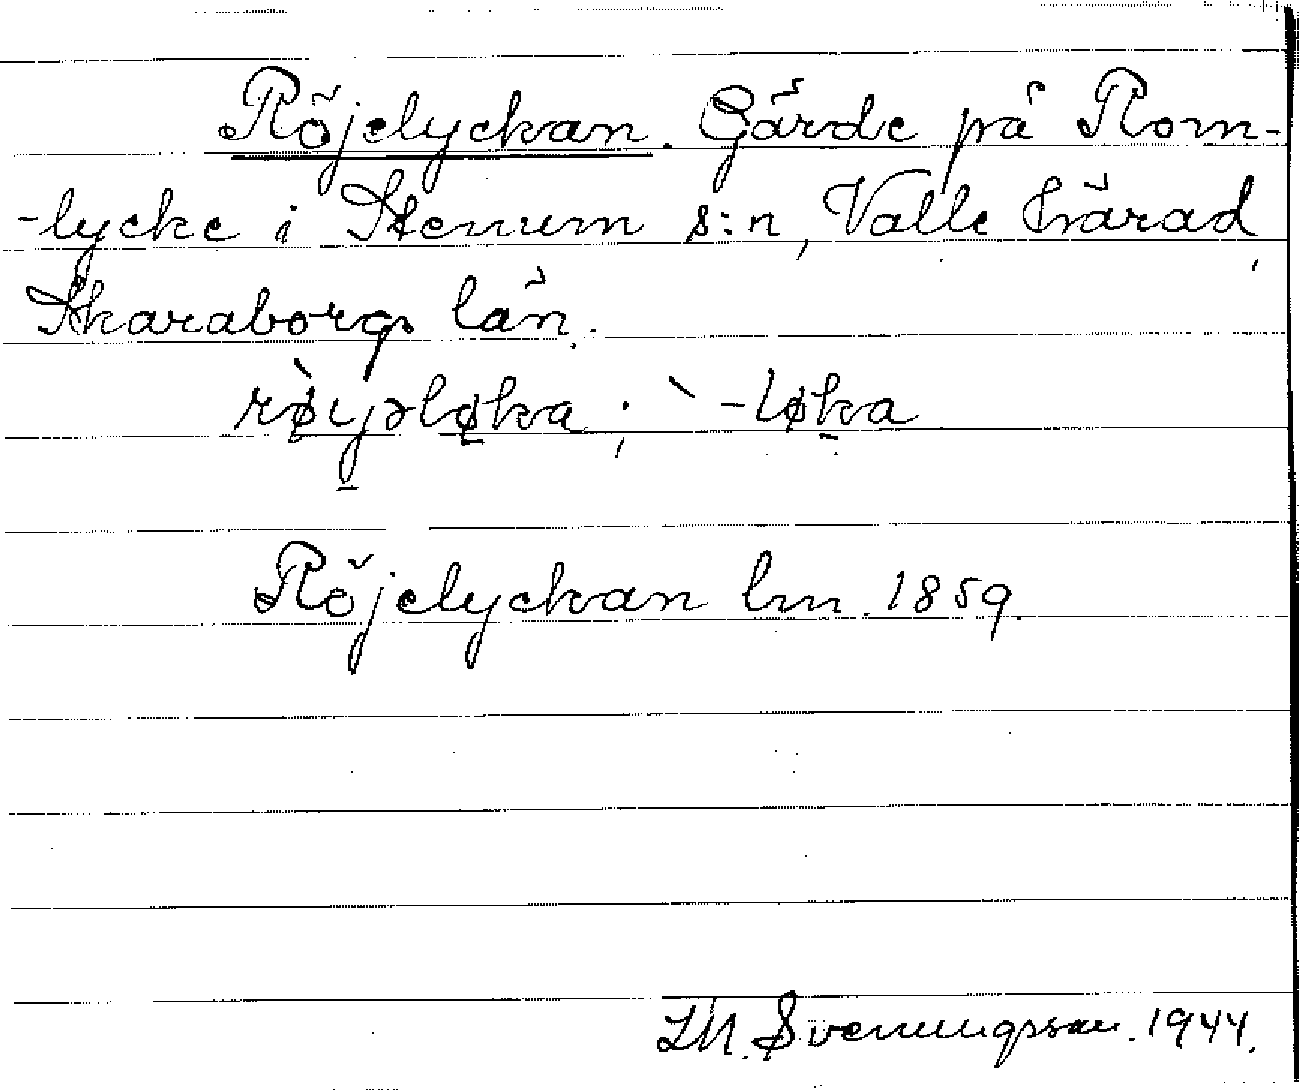 Röjelyckan. Gärde på Rom-
-lycke i Stenum s:n, Valle härad,
Skaraborgs län.
rø̀yjəløka; `-løka
Röjelyckan lm. 1859.
Svenungsson. 1944.